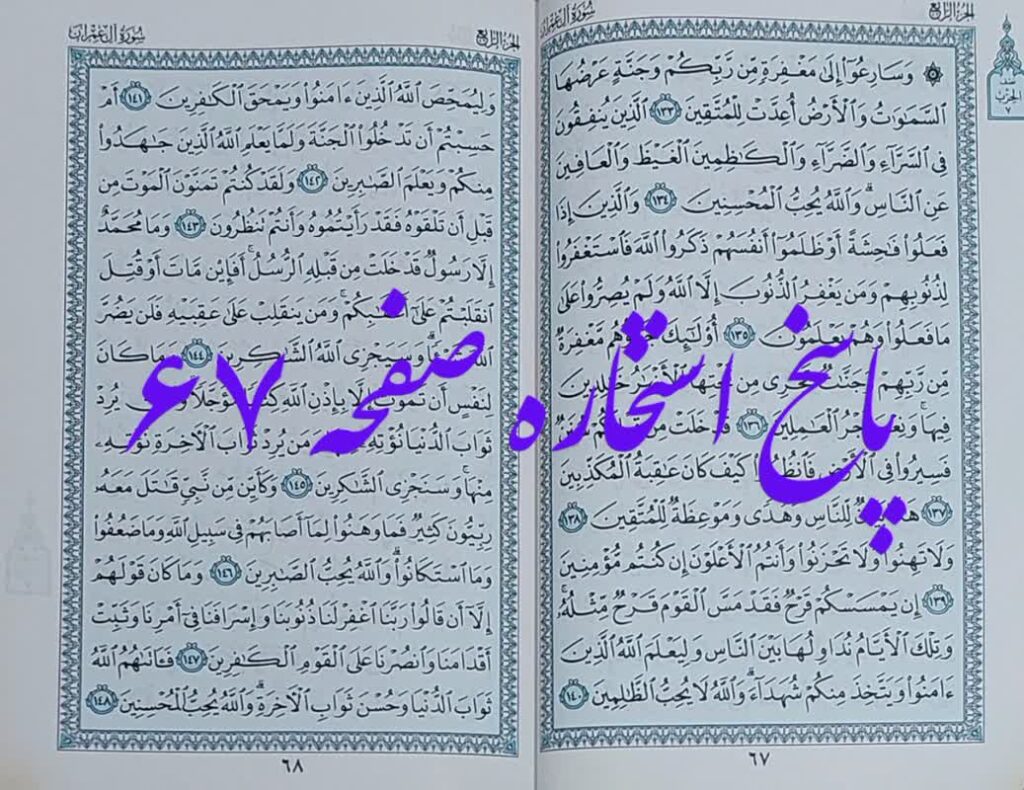 الجزء الرابع
سورة آل عمران
۞ وَسَارِعُوٓا۟ إِلَىٰ مَغْفِرَةٍ مِّن رَّبِّكُمْ وَجَنَّةٍ عَرْضُهَا
ٱلسَّمَٰوَٰتُ وَٱلْأَرْضُ أُعِدَّتْ لِلْمُتَّقِينَ ١٣٣ ٱلَّذِينَ يُنفِقُونَ
فِى ٱلسَّرَّآءِ وَٱلضَّرَّآءِ وَٱلْكَٰظِمِينَ ٱلْغَيْظَ وَٱلْعَافِينَ
عَنِ ٱلنَّاسِ ۗ وَٱللَّهُ يُحِبُّ ٱلْمُحْسِنِينَ ١٣٤ وَٱلَّذِينَ إِذَا
فَعَلُوا۟ فَٰحِشَةً أَوْ ظَلَمُوٓا۟ أَنفُسَهُمْ ذَكَرُوا۟ ٱللَّهَ فَٱسْتَغْفَرُوا۟
لِذُنُوبِهِمْ وَمَن يَغْفِرُ ٱلذُّنُوبَ إِلَّا ٱللَّهُ وَلَمْ يُصِرُّوا۟ عَلَىٰ
مَا فَعَلُوا۟ وَهُمْ يَعْلَمُونَ ١٣٥ أُو۟لَٰٓئِكَ جَزَآؤُهُم مَّغْفِرَةٌ
مِّن رَّبِّهِمْ وَجَنَّٰتٌ تَجْرِى مِن تَحْتِهَا ٱلْأَنْهَٰرُ خَٰلِدِينَ
فِيهَا ۚ وَنِعْمَ أَجْرُ ٱلْعَٰمِلِينَ ١٣٦ قَدْ خَلَتْ مِن قَبْلِكُمْ سُنَنٌ
فَسِيرُوا۟ فِى ٱلْأَرْضِ فَٱنظُرُوا۟ كَيْفَ كَانَ عَٰقِبَةُ ٱلْمُكَذِّبِينَ
١٣٧ هَٰذَا بَيَانٌ لِّلنَّاسِ وَهُدًى وَمَوْعِظَةٌ لِّلْمُتَّقِينَ ١٣٨
وَلَا تَهِنُوا۟ وَلَا تَحْزَنُوا۟ وَأَنتُمُ ٱلْأَعْلَوْنَ إِن كُنتُم مُّؤْمِنِينَ
١٣٩ إِن يَمْسَسْكُمْ قَرْحٌ فَقَدْ مَسَّ ٱلْقَوْمَ قَرْحٌ مِّثْلُهُۥ ۚ
وَتِلْكَ ٱلْأَيَّامُ نُدَاوِلُهَا بَيْنَ ٱلنَّاسِ وَلِيَعْلَمَ ٱللَّهُ ٱلَّذِينَ
ءَامَنُوا۟ وَيَتَّخِذَ مِنكُمْ شُهَدَآءَ ۗ وَٱللَّهُ لَا يُحِبُّ ٱلظَّٰلِمِينَ ١٤٠
٦٧
الجزء الرابع
سورة آل عمران
وَلِيُمَحِّصَ ٱللَّهُ ٱلَّذِينَ ءَامَنُوا۟ وَيَمْحَقَ ٱلْكَٰفِرِينَ ١٤١ أَمْ
حَسِبْتُمْ أَن تَدْخُلُوا۟ ٱلْجَنَّةَ وَلَمَّا يَعْلَمِ ٱللَّهُ ٱلَّذِينَ جَٰهَدُوا۟
مِنكُمْ وَيَعْلَمَ ٱلصَّٰبِرِينَ ١٤٢ وَلَقَدْ كُنتُمْ تَمَنَّوْنَ ٱلْمَوْتَ مِن
قَبْلِ أَن تَلْقَوْهُ فَقَدْ رَأَيْتُمُوهُ وَأَنتُمْ تَنظُرُونَ ١٤٣ وَمَا مُحَمَّدٌ
إِلَّا رَسُولٌ قَدْ خَلَتْ مِن قَبْلِهِ ٱلرُّسُلُ ۚ أَفَإِي۟ن مَّاتَ أَوْ قُتِلَ
ٱنقَلَبْتُمْ عَلَىٰٓ أَعْقَٰبِكُمْ ۚ وَمَن يَنقَلِبْ عَلَىٰ عَقِبَيْهِ فَلَن يَضُرَّ
ٱللَّهَ شَيْـًٔا ۗ وَسَيَجْزِى ٱللَّهُ ٱلشَّٰكِرِينَ ١٤٤ وَمَا كَانَ
لِنَفْسٍ أَن تَمُوتَ إِلَّا بِإِذْنِ ٱللَّهِ كِتَٰبًا مُّؤَجَّلًا ۗ وَمَن يُرِدْ
ثَوَابَ ٱلدُّنْيَا نُؤْتِهِۦ مِنْهَا وَمَن يُرِدْ ثَوَابَ ٱلْءَاخِرَةِ نُؤْتِهِۦ
مِنْهَا ۚ وَسَنَجْزِى ٱلشَّٰكِرِينَ ١٤٥ وَكَأَيِّن مِّن نَّبِىٍّ قَٰتَلَ مَعَهُۥ
رِبِّيُّونَ كَثِيرٌ فَمَا وَهَنُوا۟ لِمَآ أَصَابَهُمْ فِى سَبِيلِ ٱللَّهِ وَمَا ضَعُفُوا۟
وَمَا ٱسْتَكَانُوا۟ ۗ وَٱللَّهُ يُحِبُّ ٱلصَّٰبِرِينَ ١٤٦ وَمَا كَانَ قَوْلَهُمْ
إِلَّآ أَن قَالُوا۟ رَبَّنَا ٱغْفِرْ لَنَا ذُنُوبَنَا وَإِسْرَافَنَا فِىٓ أَمْرِنَا وَثَبِّتْ
أَقْدَامَنَا وَٱنصُرْنَا عَلَى ٱلْقَوْمِ ٱلْكَٰفِرِينَ ١٤٧ فَـَٔاتَىٰهُمُ ٱللَّهُ
ثَوَابَ ٱلدُّنْيَا وَحُسْنَ ثَوَابِ ٱلْءَاخِرَةِ ۗ وَٱللَّهُ يُحِبُّ ٱلْمُحْسِنِينَ ١٤٨
٦٨
پاسخ استخاره صفحه ۶۷